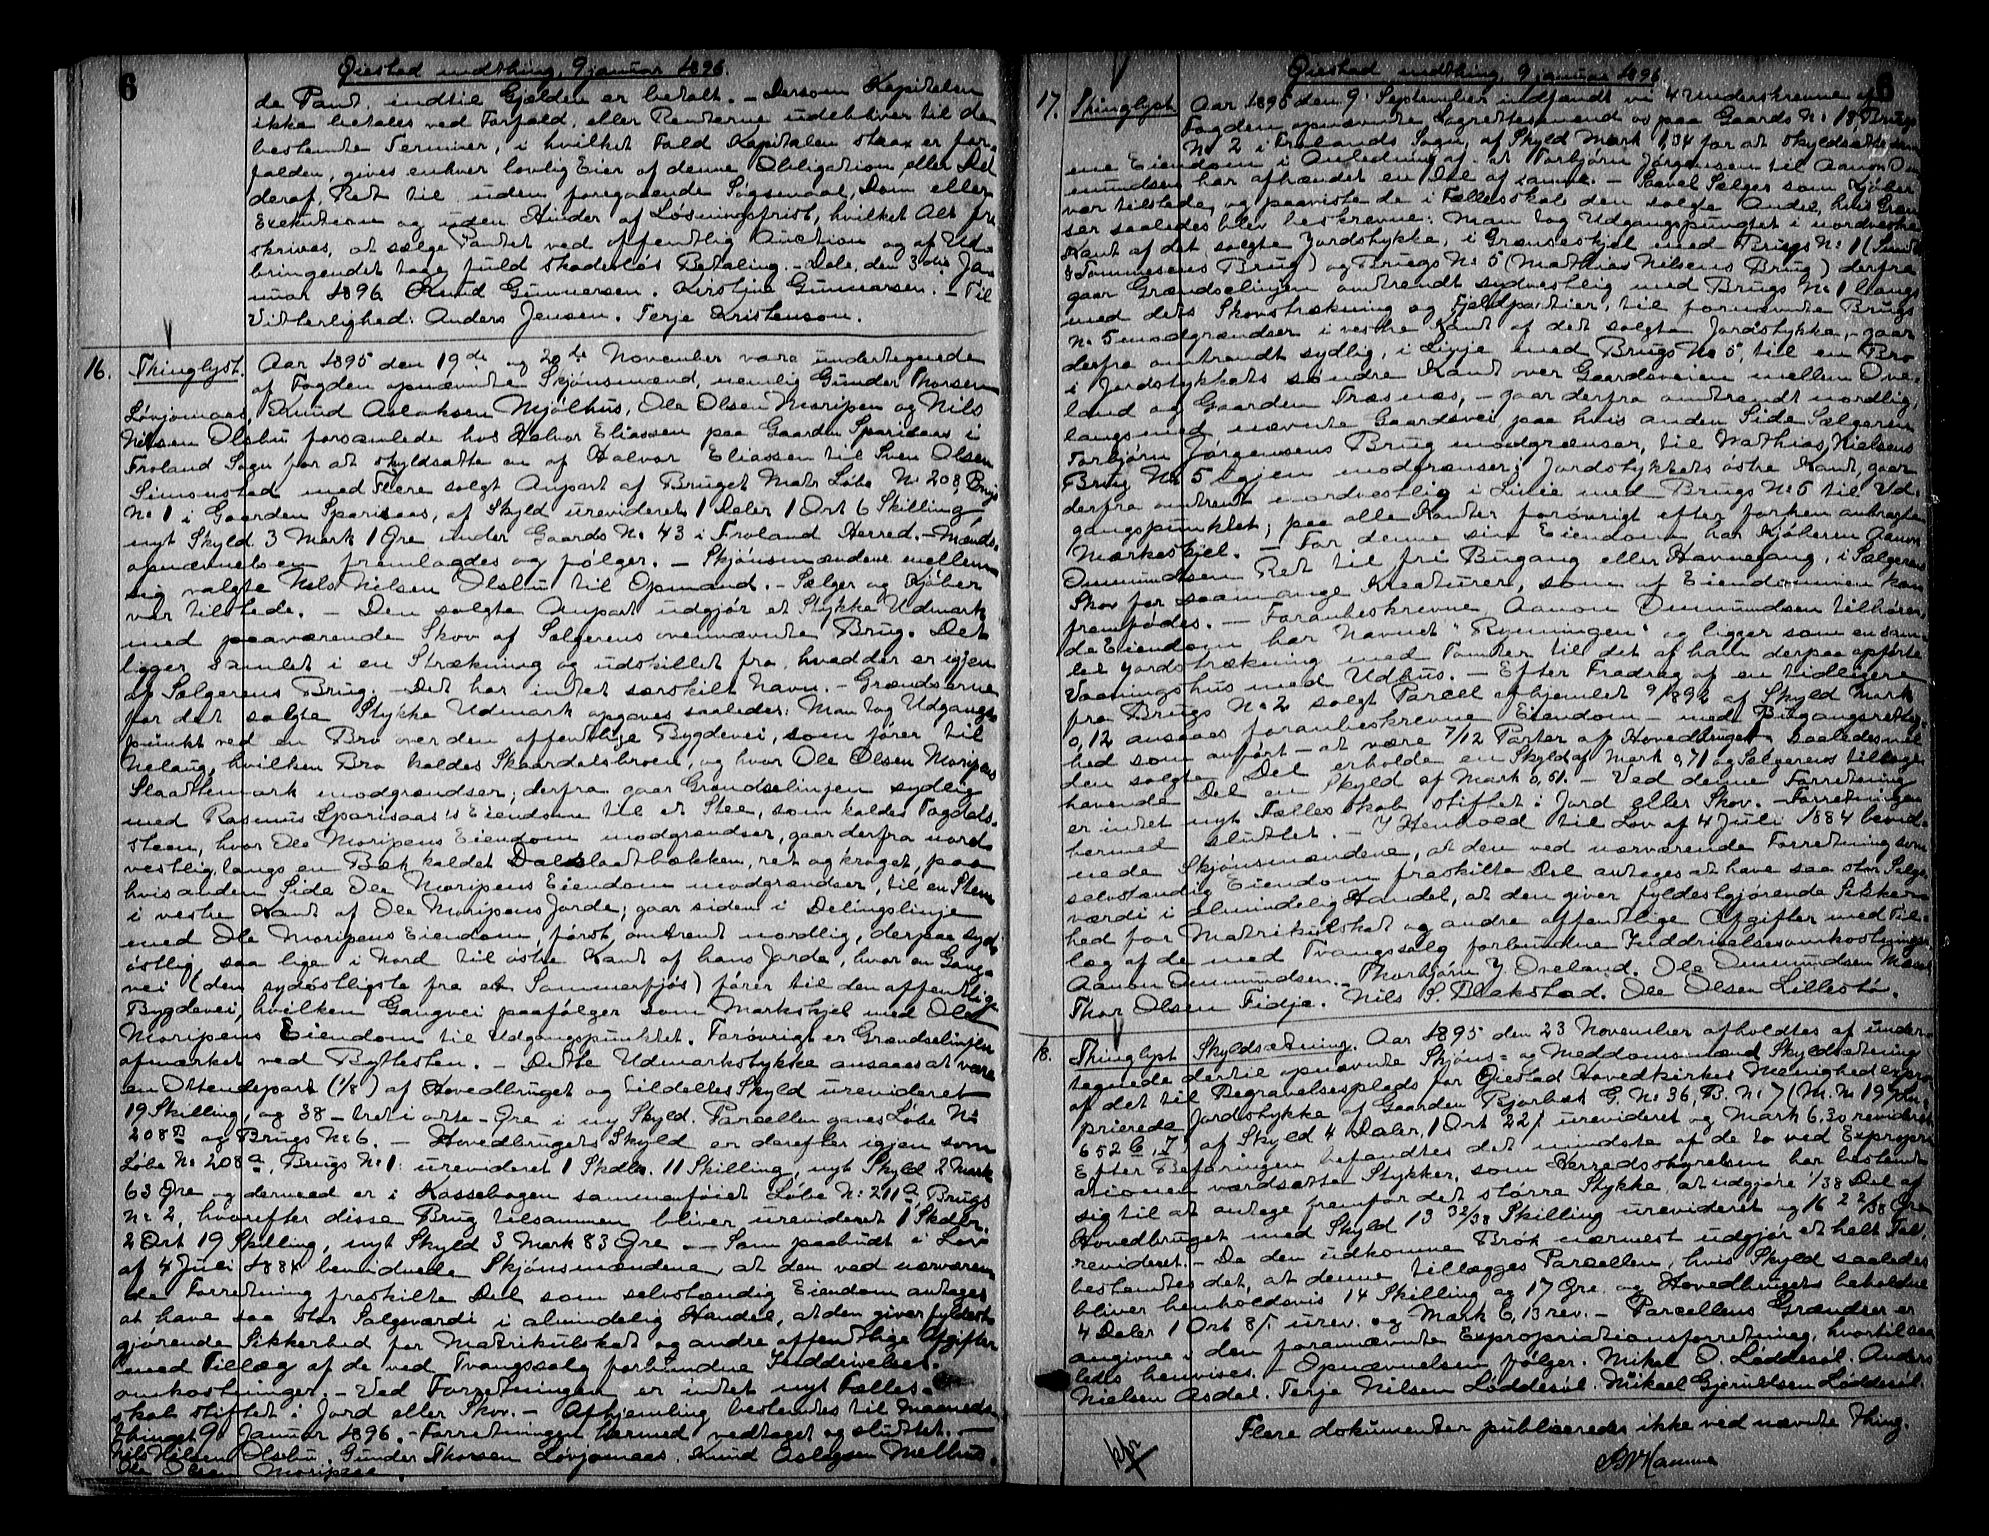 6
Øiestad mdthing, 9 januar 1896.
de Pant, indtil Gjælden er betalt. – Dersom Kapitalen
ikke betales ved Forfald, eller Renterne udebliver til de
bestemte Terminer, i hvilket Fald Kapitalen strax er for-
falden, gives enhver lovlig Eier af denne Obligation eller Del
deraf, Ret til uden foregaaende Søgsmaal, Dom eller
Exekution og uden Hinder af Løsningsfrist, hvilket Alt fra
skrives, at sælge Pantet ved offentlig Auction og af Ud-
bringendet tage fuld skadesløs Betaling. – Dale, den 3die Jan
nuar 1896. Knud Gunnarsen. Kirstine Gunnarsen. – Til
Vitterlighed: Anders Jensen. Terje Kristenson.
16. Thinglyst. Aar 1895 den 19de og 20de November vare undertegnede
af Fogden opnævnte Skjønsmænd, nemlig Gunder Thorsen
Løvjomaas, Knud Aslaksen Mjølhus, Ole Olsen Moripen og Nils
Nilsen Olsbu forsamlede hos Halvor Eliassen paa Gaarden Sparsaas i
Froland Sogn for at skyldsætte en af Halvor Eliassen til Sven Olsen
Simonstad med Flere solgt Anpart af Bruget Matr Løbe No 208, Brugs
No 1 i Gaarden Sparsaas, af Skyld urevideret 1 Daler 1 Ort 6 Skilling,
nyt Skyld 3 Mark 1 Øre under Gaards No 43 i Froland Herred. – Mænds-
opnævnelsen fremlagdes og følger. – Skjønsmændene mellem
sig valgte Nils Nilsen Olsbu til Opmand. – Sælger og Kjøber
var tilstede. – Den solgte Anpart udgjør et Stykke Udmark
med paaværende Skov af Sælgerens ovennævnte Brug. Det
ligger samlet i en Strækning og udskillet fra, hvad der er igjen
af Sælgerens Brug. – Det har intet særskilt Navn. – Grændserne
for det solgte Stykke Udmark opgaves saaledes: Man tog Udgangs-
punkt ved en Bro over den offentlige Bygdevei, som fører til
Nelaug, hvilken Bro kaldes Skaardalsbroen, og hvor Ole Olsen Moripens
Slaattemark modgrændser; derfra gaar Grændselinjen sydlig
med Rasmus Sparsaas's Eiendom til et Stee, som kaldes Fagdals-
steen, hvor Ole Moripens Eiendom modgrændser, gaar derfra nord-
vestlig langs en Bæk kaldet Dalslaatbækken, ret og kroget, paa
hvis anden Side Ole Moripens Eiendom modgrændser, til en Steen
i vestre Kant af Ole Moripens Jorde; gaar siden i Delingslinje
med Ole Moripens Eiendom, først omtrent nordlig, derpaa syd-
østlig saa lige i Nord til østre Kant af hans Jorde, hvor en Gang-
vei (den sydøstligste fra et Sommerfjøs) fører til den offentlige
Bygdevei, hvilken Gangvei paafølger som Markskjel med Ole
Moripens Eiendom til Udgangspunktet. Forøvrigt er Grændselinjen
afmærket ved Byttesten. – Dette Udmarkstykke ansaaes at være
en Ottendepart (1/8) af Hovedbruget og tildeltes Skyld urevideret
19 Skilling, og 38 – tretiotte – Øre i ny Skyld. Parcellen gaves Løbe No
208b og Brugs No 6. – Hovedbrugets Skyld er derefter igjen som
Løbe No 208a, Brugs No 1: urevideret 1 Skdlr. 11 Skilling, nyt Skyld 2 Mark
63 Øre og dermed er i Kassebogen sammenføiet Løbe No 211a, Brugs
No 2, hvorefter disse Brug tilsammen bliver urevideret 1 Skdlr.
2 Ort 19 Skilling, nyt Skyld 3 Mark 83 Øre. – Som paabudt i Lov
af 4 Juli 1884 bevidnede Skjønsmændene, at den ved nærværen-
de Forretning fraskilte Del som selvstændig Eiendom antages
at have saa stor Salgsværdi i almindelig Handel, at den giver fyldest-
gjørende Sikkerhed for Matrikulskat og andre offentlige Afgifter
med Tillæg af de ved Tvangssalg forbundne Inddrivelses-
omkostninger. – Ved Forretningen er intet nyt Fælles-
skab stiftet i Jord eller Skov. – Afhjemling bestemtes til Maaneds-
thinget 9 Januar 1896. – Forretningen hermed vedtaget og sluttet. –
Nils Nilsen Olsbu. Gunder Thorsen Løvjomaas. Knud Aslagsen Mølhus.
Ole Olsen Moripen.
Øiestad mdthing, 9 januar 1896.
6
17. Thinglyst Aar 1895 den 9. September indfandt vi 4 Underskrevne af
Fogden opnævnte Lagrettesmænd os paa Gaards No 18, Brugs
No 2 i Frolands Sogn, af Skyld Mark 1,34 for at skyldsætte sam-
me Eiendom i Anledning af at Torbjørn Jørgensen til Aanon Om-
mundsen har afhændet en Del af samme. – Saavel Sælger som Kjøber
var tilstede, og paaviste de i Fællesskab den solgte Andel, hvis Græn-
ser saaledes blev beskrevne: Man tog Udgangspungtet i nordvestre
Kant af det solgte Jordstykke, i Grænseskjel med Brugs No 1 (Sund-
s Tommesens Brug) og Brugs No 5 (Mathias Nilsens Brug) derfra
gaar Grændselinjen omtrendt sydvestlig med Brugs No 1 langs
med dets Skovstrækning og Fjeldpartier, til fornævnte Brugs
No 5 modgrændser i vestre Kant af det solgte Jordstykke, – gaar
derfra omtrendt sydlig, i Linje med Brugs No 5, til en Bro
i Jordstykkets søndre Kant over Gaardsveien mellem Ove-
land og Gaarden Træsnæs, – gaar derfra omtrendt nordlig,
langs med nævnte Gaardsvei paa hvis anden Side Sælgeren
Torbjørn Jørgensens Brug modgrænser, til Mathias Nielsens
Brug No 5 igjen modgrænser i Jordstykkets østre Kant, gaar
derfra omtrent nordvestlig i Linie med Brugs No 5 til Ud-
gangspunktet; paa alle Kanter forøvrigt efter forhen anbragte
Mærkeskjel. – For denne sin Eiendom har Kjøberen Aanon
Ommundsen Ret til fri Bugang eller Havnegang, i Sælgerens
Skov for saamange Kreaturer, som af Eiendommen kan
fremfødes. – Foranbeskrevne, Aanon Ommundsen tilhøren-
de Eiendom har Navnet "Rynningen" og ligger som en sam-
let Jordstrækning med Tomter til det af ham derpaa opførte
Vaaningshus med Udhus. – Efter Fradrag af en tidligere
fra Brugs No 2 solgt Parcel afhjemlet 9/1892 af Skyld Mark
0,12 ansaaes foranbeskrevne Eiendom – med Bugangsrettig-
hed som anført – at være 7/12 Parter af Hovedbruget saaledes vil
den solgte Del erholde en Skyld af Mark 0,71 og Sælgerens tilbage-
havende Del en Skyld af Mark 0,51. – Ved denne Forretning
er intet nyt Fællesskab stiftet i Jord eller Skov. – Forretningen
hermed sluttet. – I Henhold til Lov af 4 Juli 1884 bevid-
nede Skjønsmændene, at den ved nærværende Forretning som
selvstændig Eiendom fraskilte Del antages at have saa stor Salgs-
værdi i almindelig Handel, at den giver fyldestgjørende Sikker-
hed for Matrikulskat og andre offentlige Afgifter med Til-
læg af de med Tvangssalg forbundne Inddrivelsesomkostninger.
Aanon Ommundsen. Thorbjørn J. Oveland. Ole Ommundsen
Thor Olsen Fidje. Nils S. Blakstad. Ole Olsen Lillestøl.
18. Thinglyst Skyldsætning. Aar 1895 den 23 November afholdtes af under-
tegnede dertil opnævnte Skjøns- og Meddomsmænd Skyldsætning
af det til Begravelsesplads for Øiestad Hovedkirkes Menighed expro-
prierede Jordstykke af Gaarden Bjorbæk G. No 36, B. No 7 (M. No 197 L. No
652 b, I) af Skyld 4 Daler, 1 Ort 22 ß urevideret og Mark 6.30 revideret.
Efter Befaringen befandtes det mindste af de to ved Expropri-
ationen værdsatte Stykker, som Herredsstyrelsen har bestemt
sig til at antage fremfor det større Stykke at udgjøre 1/38 Del af
Hovedbruget med Skyld 13 32/38 Skilling urevideret og 16 22/38 Øre
revideret. – Da den udkomne Brøk nærmest udgjør et helt Tal,
bestemtes det, at denne tillægges Parcellen, hvis Skyld saaledes
bliver henholdsvis 14 Skilling og 17 Øre og Hovedbrugets beholdne
4 Daler 1 Ort 8 ß urev. og Mark 6,13 rev. – Parcellens Grændser er
angivne i den forannævnte Expropriationsforretning, hvortil saa-
ledes henvises. – Opnævnelsen følger. Mikal O. Løddesøl. Anders
Nielsen Asdal. Terje Nilsen Løddesøl. Mikael Gjeruldsen Løddesøl.
Flere dokumenter publiseredes ikke ved nævnte Thing.